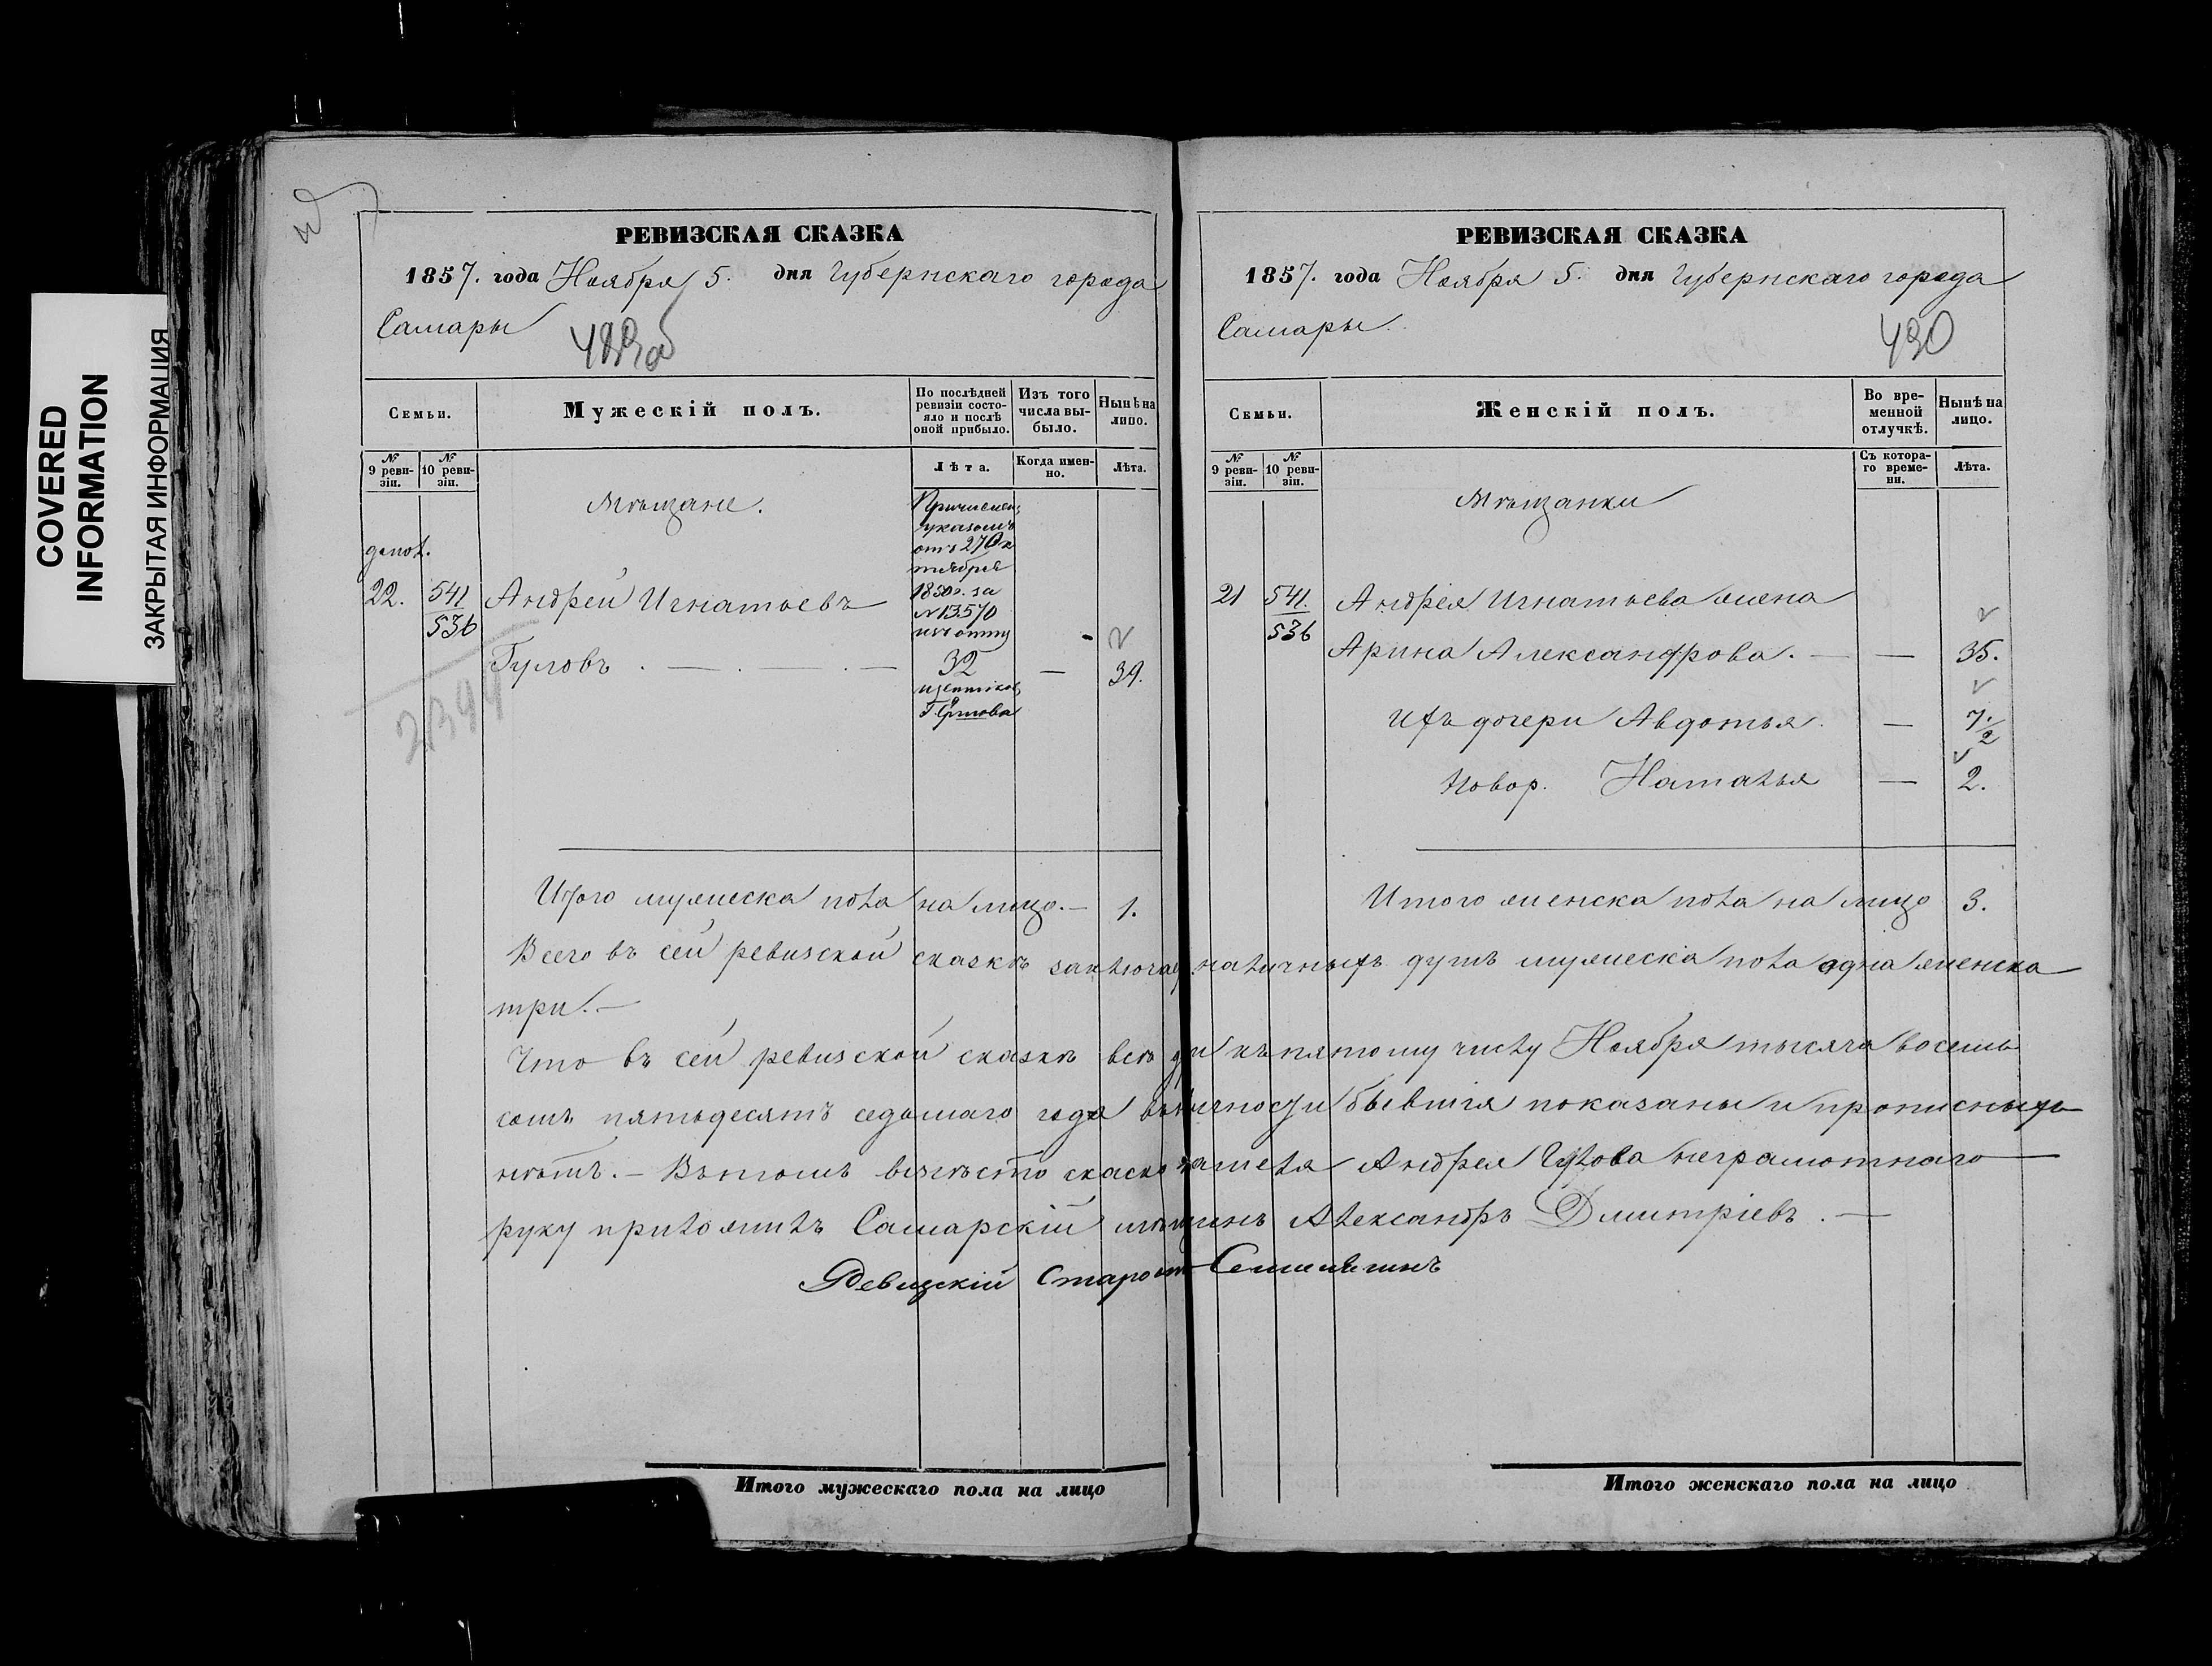 COVERED
INFORMATION
ЗАКРЫТАЯ ИНФОРМАЦИЯ
РЕВИЗСКАЯ СКАЗКА
1857. года Ноября 5. дня Губернскаго города
Самары
Семьи.
Мужескій полъ.
По послѣдней ревизіи состояло и послѣ оной прибыло.
Изъ того числа выбыло.
Нынѣ на лицо.
№ 9 ревизіи.
№ 10 ревизіи.
Лѣта.
Когда именно.
Лѣта.
Мѣщане.
допол.
Причислен
указомъ
отъ 27 Ок
тября
1850 г. за
№ 13570
22.
541
536
Андрей Игнатьевъ
Гуловъ . — . — . —
32
—
39.
Итого мужеска пола на лицо. — 1.
РЕВИЗСКАЯ СКАЗКА
1857. года Ноября 5. дня Губернскаго города
Самары.
430
Семьи.
Женскій полъ.
Во временной отлучкѣ.
Нынѣ на лицо.
№ 9 ревизіи.
№ 10 ревизіи.
Съ котораго времени.
Лѣта.
Мѣщанки
21
541.
536
Андрея Игнатьева жена
Арина Александрова. — — 35.
Ихъ дочери Авдотья. — 7. /2
Новор. Наталья — 2.
Итого женска пола на лицо 3.
Всего въ сей ревизской сказкѣ заключает наличныхъ душъ мужеска пола одна женска
три. —
Что въ сей ревизской сказкѣ всѣ къ пятому числу Ноября тысяча восемь
сотъ пятьдесятъ седьмаго года бывшія показаны и прописныхъ
нѣтъ. — Въ томъ вмѣсто скаскодателя Андрея Гулова неграмотнаго —
руку приложилъ Самарскій мѣщинъ Александръ Дмитріевъ. —
Ревизскій Староста
Итого мужескаго пола на лицо
Итого женскаго пола на лицо